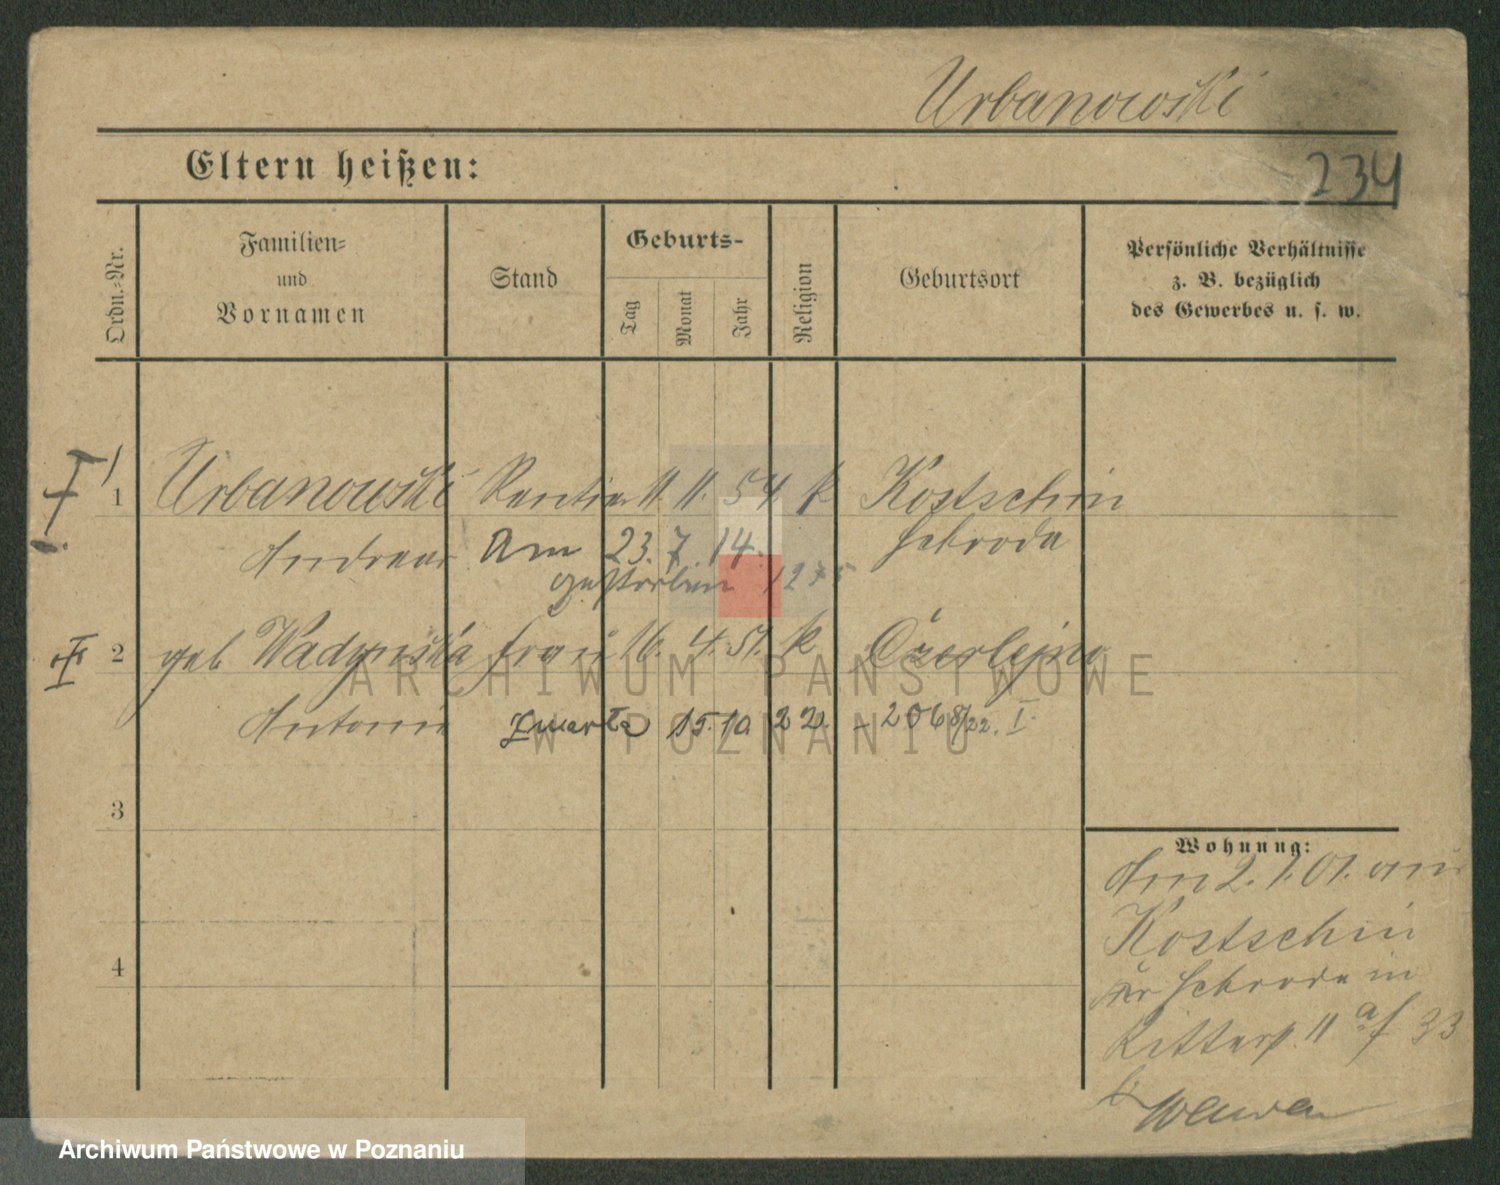 Urbanowski
Eltern heißen:
234
Ordn.-Nr.
Familien-
und
Vornamen
Stand
Geburts-
Tag
Monat
Jahr
Religion
Geburtsort
Persönliche Verhältnisse
z. B. bezüglich
des Gewerbes u. s. w.
1 Urbanowski Rentier 11. 11. 54. k Kostschin
Andreas Am 23. 7. 14. Schroda
gestorben
2 geb Frau 16. 4. 51. k Czerlejno
Antonie Zmarła 15. 10 22. 2068/22. I.
3
4
Wohnung:
Am 2. 1. 01. aus
Kostschin
Kr Schroda in
Ritterst. 11 a/f 33
ARCHIWUM PAŃSTWOWE
W POZNANIU
Archiwum Państwowe w Poznaniu